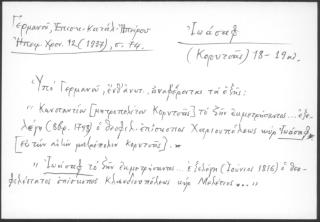 Γερμανού, Επισκ. Κατάλ. Ηπείρου
Ηπειρ. Χρον. 12 (1937), σ. 74.
Ἰωάσαφ
(Κορυτσᾶς) 18-19 αι.
Ὑπὸ Γερμανοῦ, ἔνθ' ἀνωτ. ἀναφέρονται τὰ ἑξῆς:
"Κωνσταντίου [μητροπολίτου Κορυτσᾶς] τὸ ζῆν ἐκμετρήσαντος... ἐξε-
λέγη ( 1798) ὁ θεοφιλ. ἐπίσκοπος Χαριουπόλεως κὺρ Ἰωάσαφ
[εἰς τὴν αὐτὴν μητρόπολιν Κορυτσᾶς].
"Ἰωάσαφ τὸ ζῆν ἐκμετρήσαντος... ἐξελέγη (Ἰούνιος 1816) ὁ θεο-
φιλέστατος ἐπίσκοπος Κλαυδιουπόλεως κὺρ Μελέτιος..."